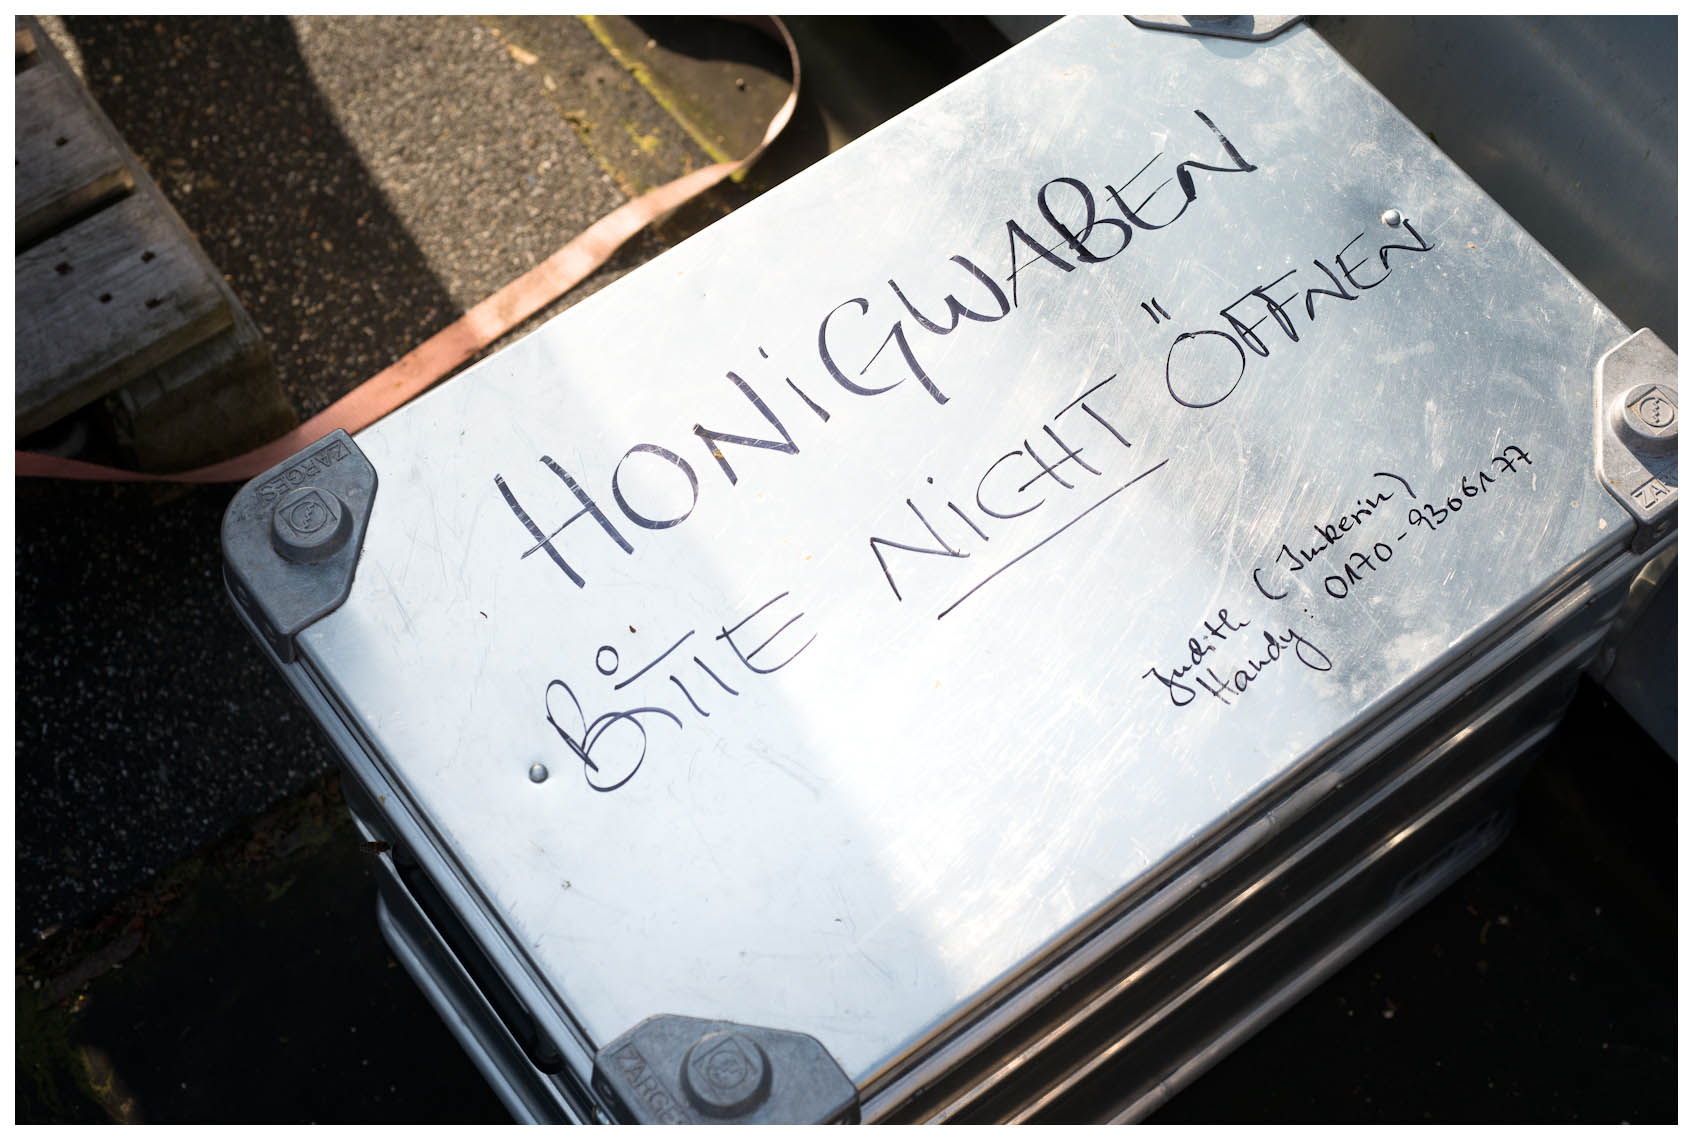 HONiGWABEN
BITTE NiCHT ÖFFNEN
Judith (Imkerin)
Handy: 0170-9306177
ZARGES
ZARGES
ZAR